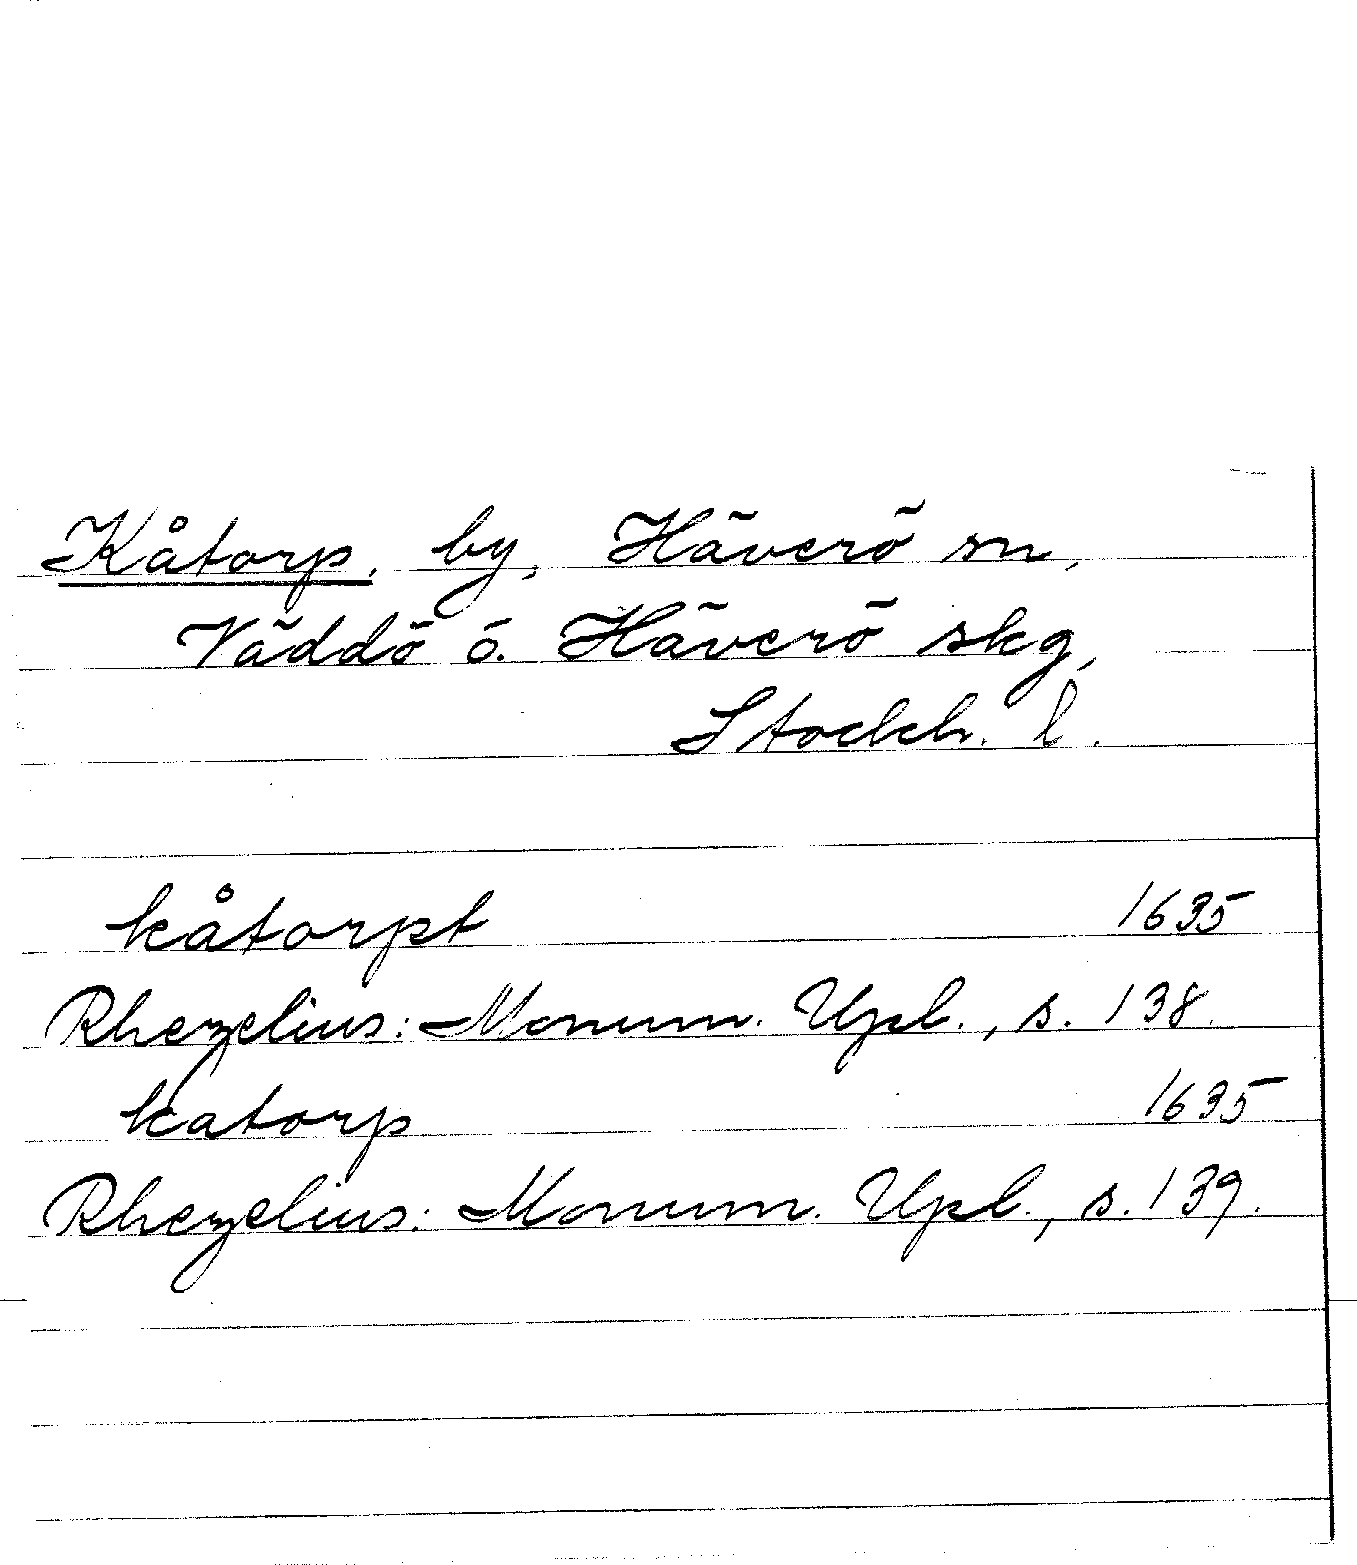 Kåtorp, by, Häverö sn,
Väddö o. Häverö skg,
Stockh. l.
kåtorpt 1635
Rhezelius: Monum. Upl., s. 138.
katorp 1635
Rhezelius: Monum. Upl., s. 139.